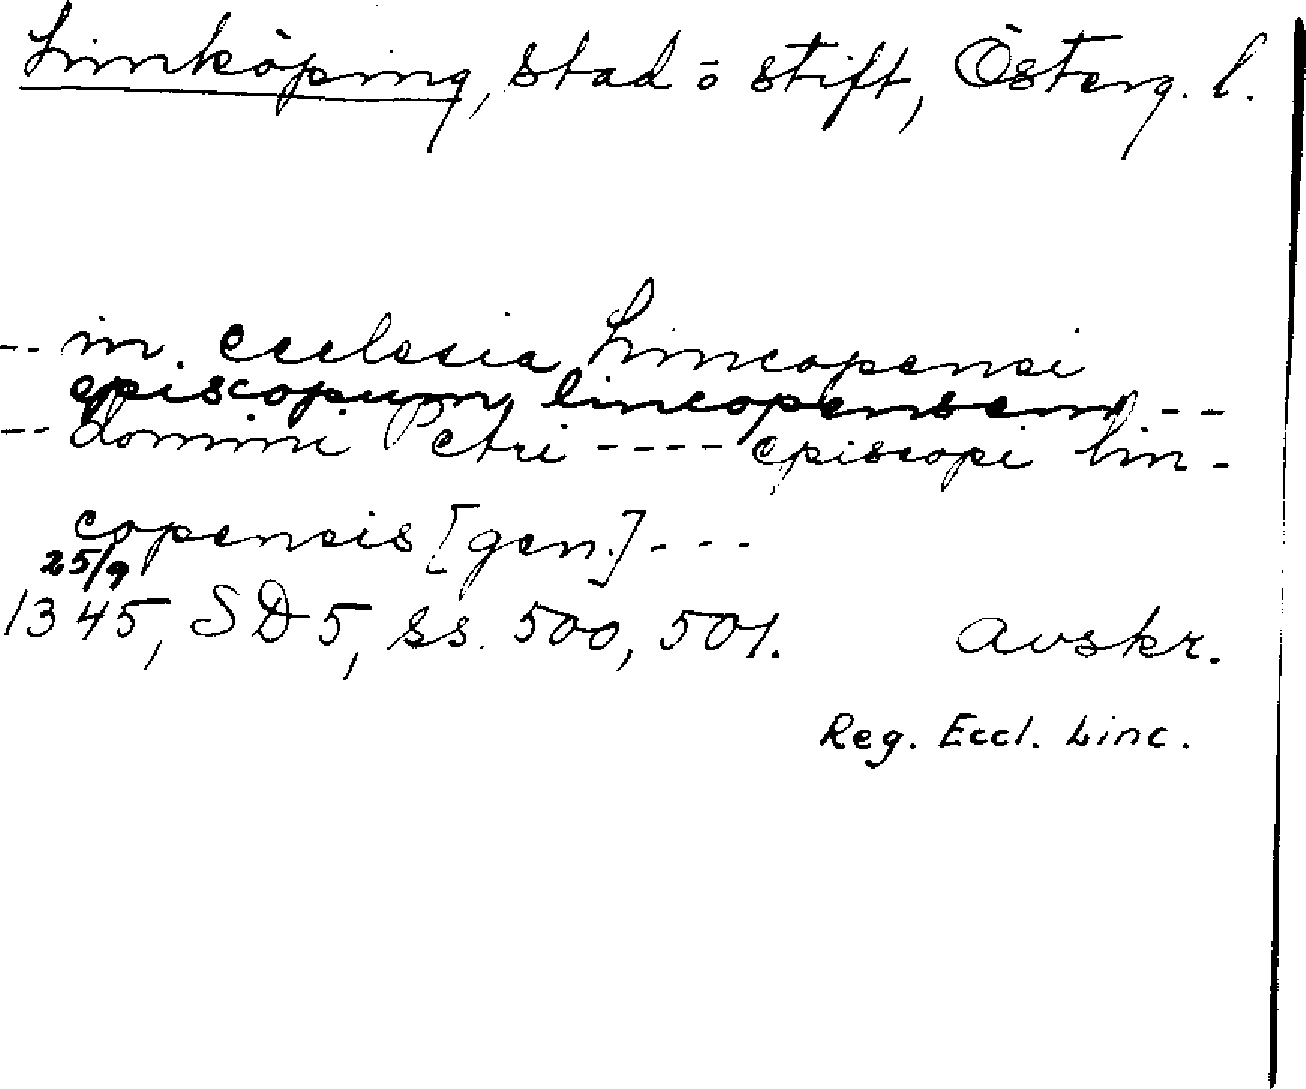 Linköping, stad o stift, Österg. l.
-- in ecclesia Lincopensi
episcopum lincopensem --
-- domini Petri ---- episcopi lin-
copensis [gen.] ---
25/9
1345, SD 5, ss. 500, 501. Avskr.
Reg. Eccl. Linc.